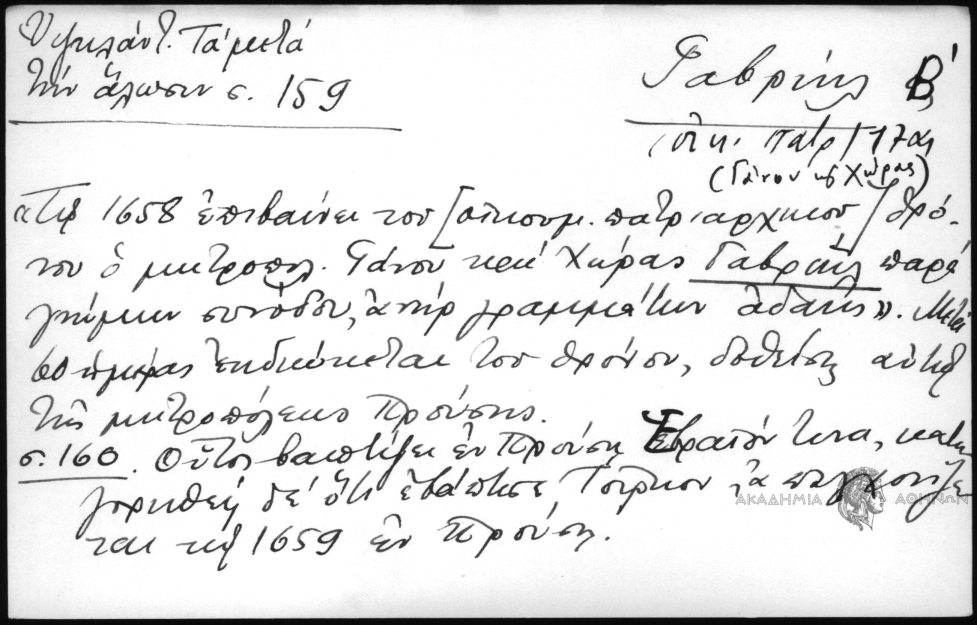 Ὑψηλάντ. Τά μετά
τήν ἅλωσιν σ. 159
Γαβριήλ Β΄
(οἰκ. πατρ 17ος
(Γάνου κ Χώρας)
«Τῷ 1658 ἐπιβαίνει τοῦ [οἰκουμ. πατριαρχικοῦ] θρό-
νου ὁ μητροπλ. Γάνου καί Χώρας Γαβριήλ παρά
γνώμην συνόδου, ἀνήρ γραμμάτων ἀδαής». Μετά
ἡμέρας ἐκδιώκεται τοῦ θρόνου, δοθείσης αὐτῷ
τῆς μητροπόλεως Προύσης.
σ. 160. Οὗτος βαπτίζει ἐν Προύσῃ Ἑβραῖόν τινα, κατη
γορηθείς δέ ὅτι ἐβάπτισε Τοῦρκον, ἀπαγχονίζε
ται τῷ 1659 ἐν Προύσῃ.
ΑΚΑΔΗΜΙΑ ΑΘΗΝΩΝ